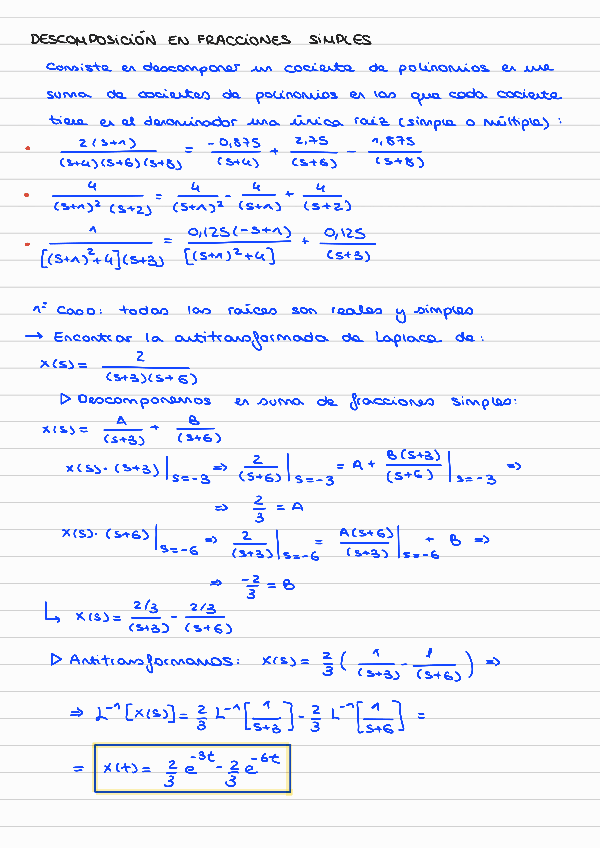 DESCOMPOSICIÓN EN FRACCIONES SIMPLES
Consiste en descomponer un cociente de polinomios en una
suma de cocientes de polinomios en las que cada cociente
tiene en el denominador una única raíz (simple o múltiple):
• 2(s+1)/((s+4)(s+6)(s+8)) = -0,875/(s+4) + 2,75/(s+6) - 1,875/(s+8)
• 4/((s+1)² (s+2)) = 4/(s+1)² - 4/(s+1) + 4/(s+2)
• 1/([(s+1)²+4](s+3)) = 0,125(-s+1)/[(s+1)²+4] + 0,125/(s+3)
1º Caso: todas las raíces son reales y simples
→ Encontrar la antitransformada de Laplace de:
x(s) = 2/((s+3)(s+6))
▷ Descomponemos en suma de fracciones simples:
x(s) = A/(s+3) + B/(s+6)
x(s)·(s+3)|s=-3 ⇒ 2/(s+6)|s=-3 = A + B(s+3)/(s+6)|s=-3 ⇒
⇒ 2/3 = A
x(s)·(s+6)|s=-6 ⇒ 2/(s+3)|s=-6 = A(s+6)/(s+3)|s=-6 + B ⇒
⇒ -2/3 = B
↳ x(s) = 2/3/(s+3) - 2/3/(s+6)
▷ Antitransformamos: x(s) = 2/3 ( 1/(s+3) - 1/(s+6) ) ⇒
⇒ L⁻¹[x(s)] = 2/3 L⁻¹[1/s+3] - 2/3 L⁻¹[1/s+6] =
= x(t) = 2/3 e^-3t - 2/3 e^-6t